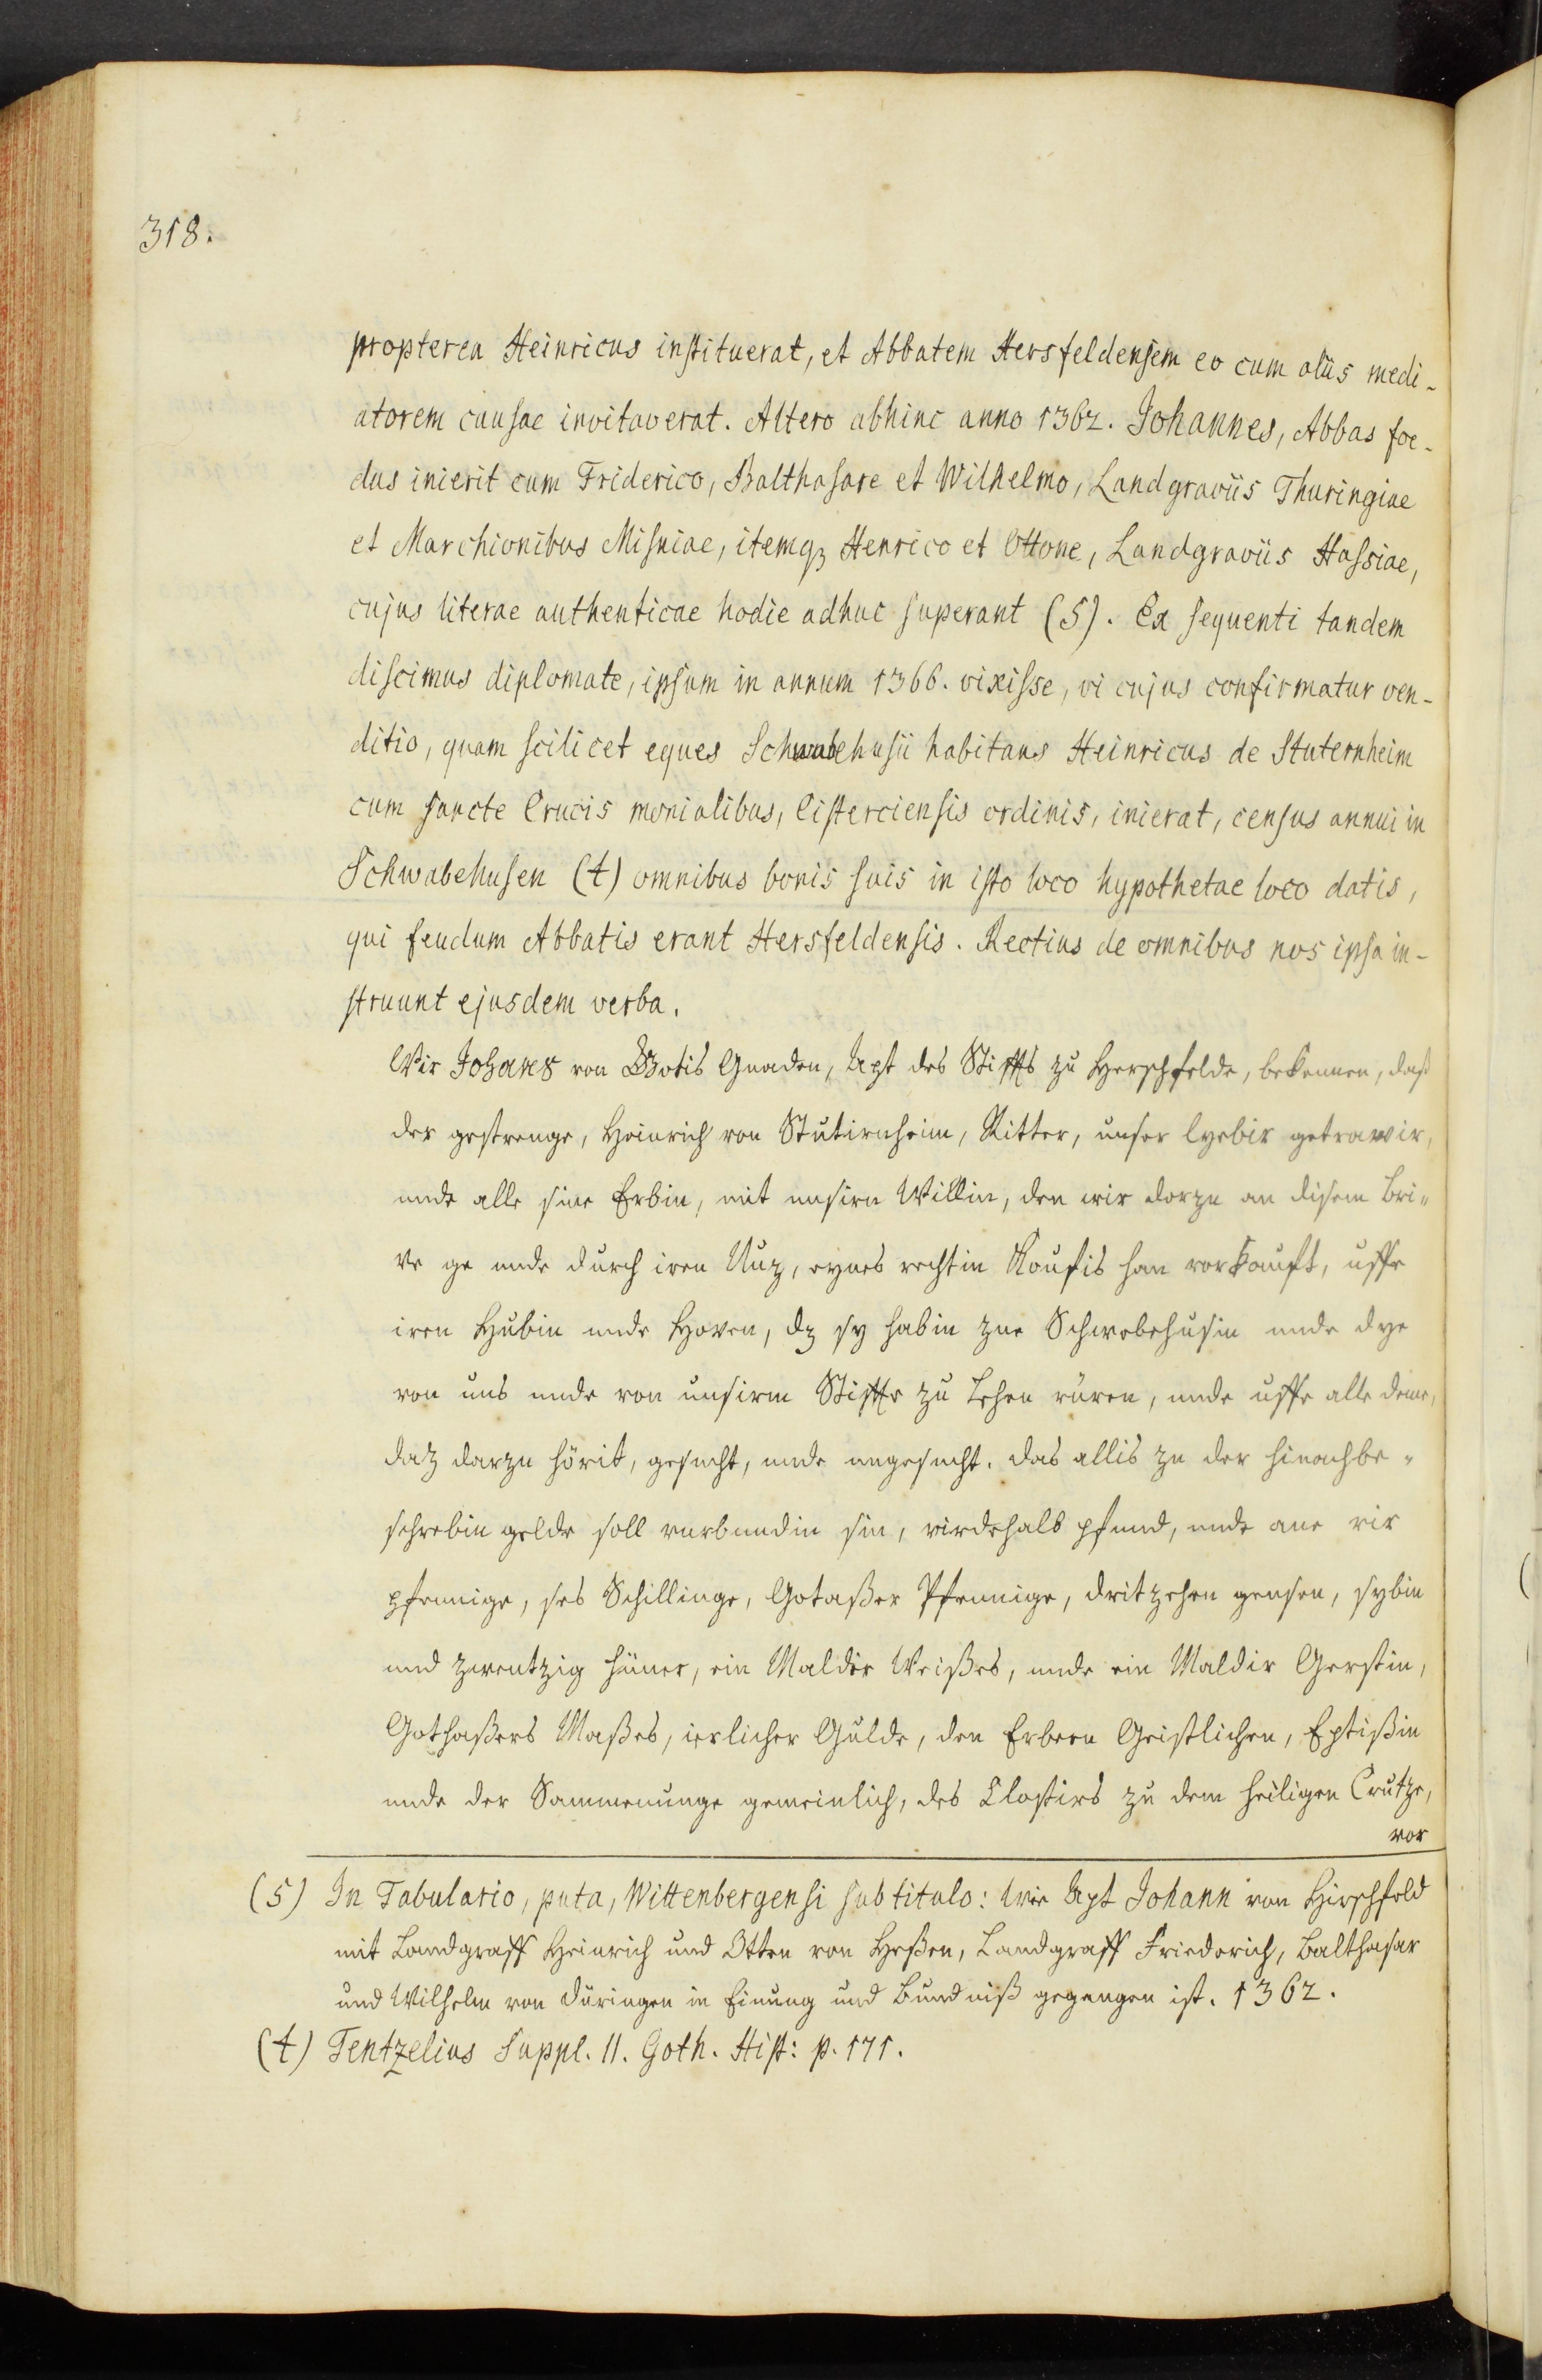 318.
propterea Heinricus instituerat, et Abbatem Hersfeldensem eo cum aliis medi-
atorem causae invitaverat. Altero abhinc anno 1362. Johannes, Abbas foe-
dus inierit cum Friderico, Balthasare et Wilhelmo, Landgraviis Thuringiae
et Marchionibus Misniae, itemq3 Henrico et Ottone, Landgraviis Hassiae,
cujus literae authenticae hodie adhuc superant (5). Ex sequenti tandem
discimus diplomate, ipsum in annum 1366. vixisse, vi cujus confirmatur ven-
ditio, quam scilicet eques Schwabehusii habitans Heinricus de Stuternheim
cum sancte Crucis monialibus, Cisterciensis ordinis, inierat, census annui in
Schwabehusen (t) omnibus bonis suis in isto loco hypothetae loco datis,
qui feudum Abbatis erant Hersfeldensis. Rectius de omnibus nos ipsa in-
struunt ejusdem verba.
Wir Johans von Gotis Gnaden, Apt des Stiffts zu Herschfelde, bekennen, daß
der gestrenge, Heinrich von Stutirnheim, Ritter, unser lyebir getrawir,
unde alle sine Erbin, mit unsirn Willin, den wir dorzu an disem Bri„
ve ge unde durch iren Nuz, eynes rechtin Koufis han vorkouft, uffe
iren Hubin unde Hoven, dz sy habin zue Schwobehusin unde dye
von uns unde von unsirm Stiffte zu Lehen rüren, unde uffe alle deme,
datz darzu hörit, gesucht, unde ungesucht. das allis zu der hinachbe„
schrebin gelde soll vurbundin sin, virdehalb pfund, unde ane vir
pfennige, ses Schillinge, Gotaßer Pfennige, dritzehen gensen, sybin
und zwentzig hüner, ein Maldir Weißes, unde ein Maldir Gerstin,
Gothaßers Maßes, ierlicher Gulde, den Erbern Geistlichen, Eptißin
unde der Sammenunge gemeinlich, des Clostirs zu dem heiligen Crutze,
vor
(5) In Tabulario, puta, Wittenbergensi sub titulo: wie Apt Johann von Hirschfeld
mit Landgraff Heinrich und Otten von Heßen, Landgraff Friederich, Balthasar
und Wilhelm von Düringen in Einung und Bundniß gegangen ist. 1362.
(t) Tentzelius Suppl. II. Goth. Hist: p. 171.